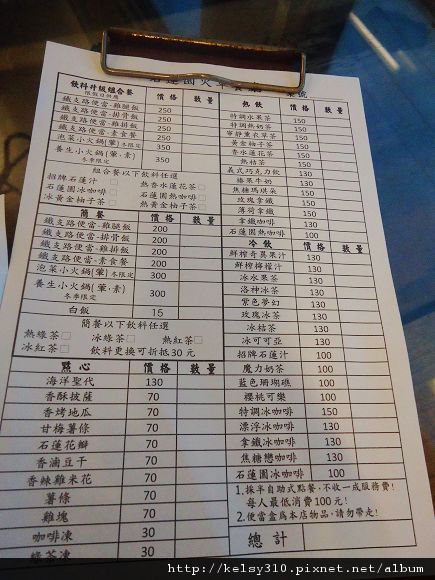 飲料升級組合餐 價格 數量
限假日供應
鐵支路便當-雞腿飯 250
鐵支路便當-排骨飯 250
鐵支路便當-雞排飯 250
鐵支路便當-素食餐 250
泡菜小火鍋(葷)冬限定 350
養生小火鍋(葷.素) 350
冬季限定
組合餐以下飲料任選
招牌石蓮汁□ 熱香水蓮花茶□
石蓮園冰咖啡□ 石蓮園熱咖啡□
冰黃金柚子茶□ 熱黃金柚子茶□
簡餐 價格 數量
鐵支路便當-雞腿飯 200
鐵支路便當-排骨飯 200
鐵支路便當-雞排飯 200
鐵支路便當-素食餐 200
泡菜小火鍋(葷)冬限定 300
養生小火鍋(葷.素) 300
冬季限定
白飯 15
簡餐以下飲料任選
熱綠茶□ 冰綠茶□ 熱紅茶□
冰紅茶□ 飲料更換可折抵30元
點心 價格 數量
海洋聖代 130
香酥披薩 70
香烤地瓜 70
甘梅薯條 70
石蓮花瓣 70
香滷豆干 70
香辣雞米花 70
薯條 70
雞塊 70
咖啡凍 30
綠茶凍 30
熱飲 價格 數量
特調水果茶 150
特調熱奶茶 150
寧靜薰衣草茶 150
黃金柚子茶 150
香水蓮花茶 150
熱桔茶 150
義式巧克力飲 150
榛果牛奶 150
焦糖瑪琪朵 150
玫瑰拿鐵 150
薄荷拿鐵 150
拿鐵咖啡 150
石蓮園熱咖啡 100
冷飲 價格 數量
鮮榨奇異果汁 130
鮮榨檸檬汁 130
冰水果茶 130
洛神冰茶 130
紫色夢幻 130
玫瑰冰茶 130
冰桔茶 130
冰可可亞 130
招牌石蓮汁 100
魔力奶茶 100
藍色珊瑚礁 100
櫻桃可樂 100
特調冰咖啡 150
漂浮冰咖啡 130
拿鐵冰咖啡 130
焦糖戀咖啡 130
石蓮園冰咖啡 100
1.採半自助式點餐,不收一成服務費!
每人最低消費100元!
2.便當盒為本店物品,請勿帶走!
總計
http://kelsy310.pixnet.net/album